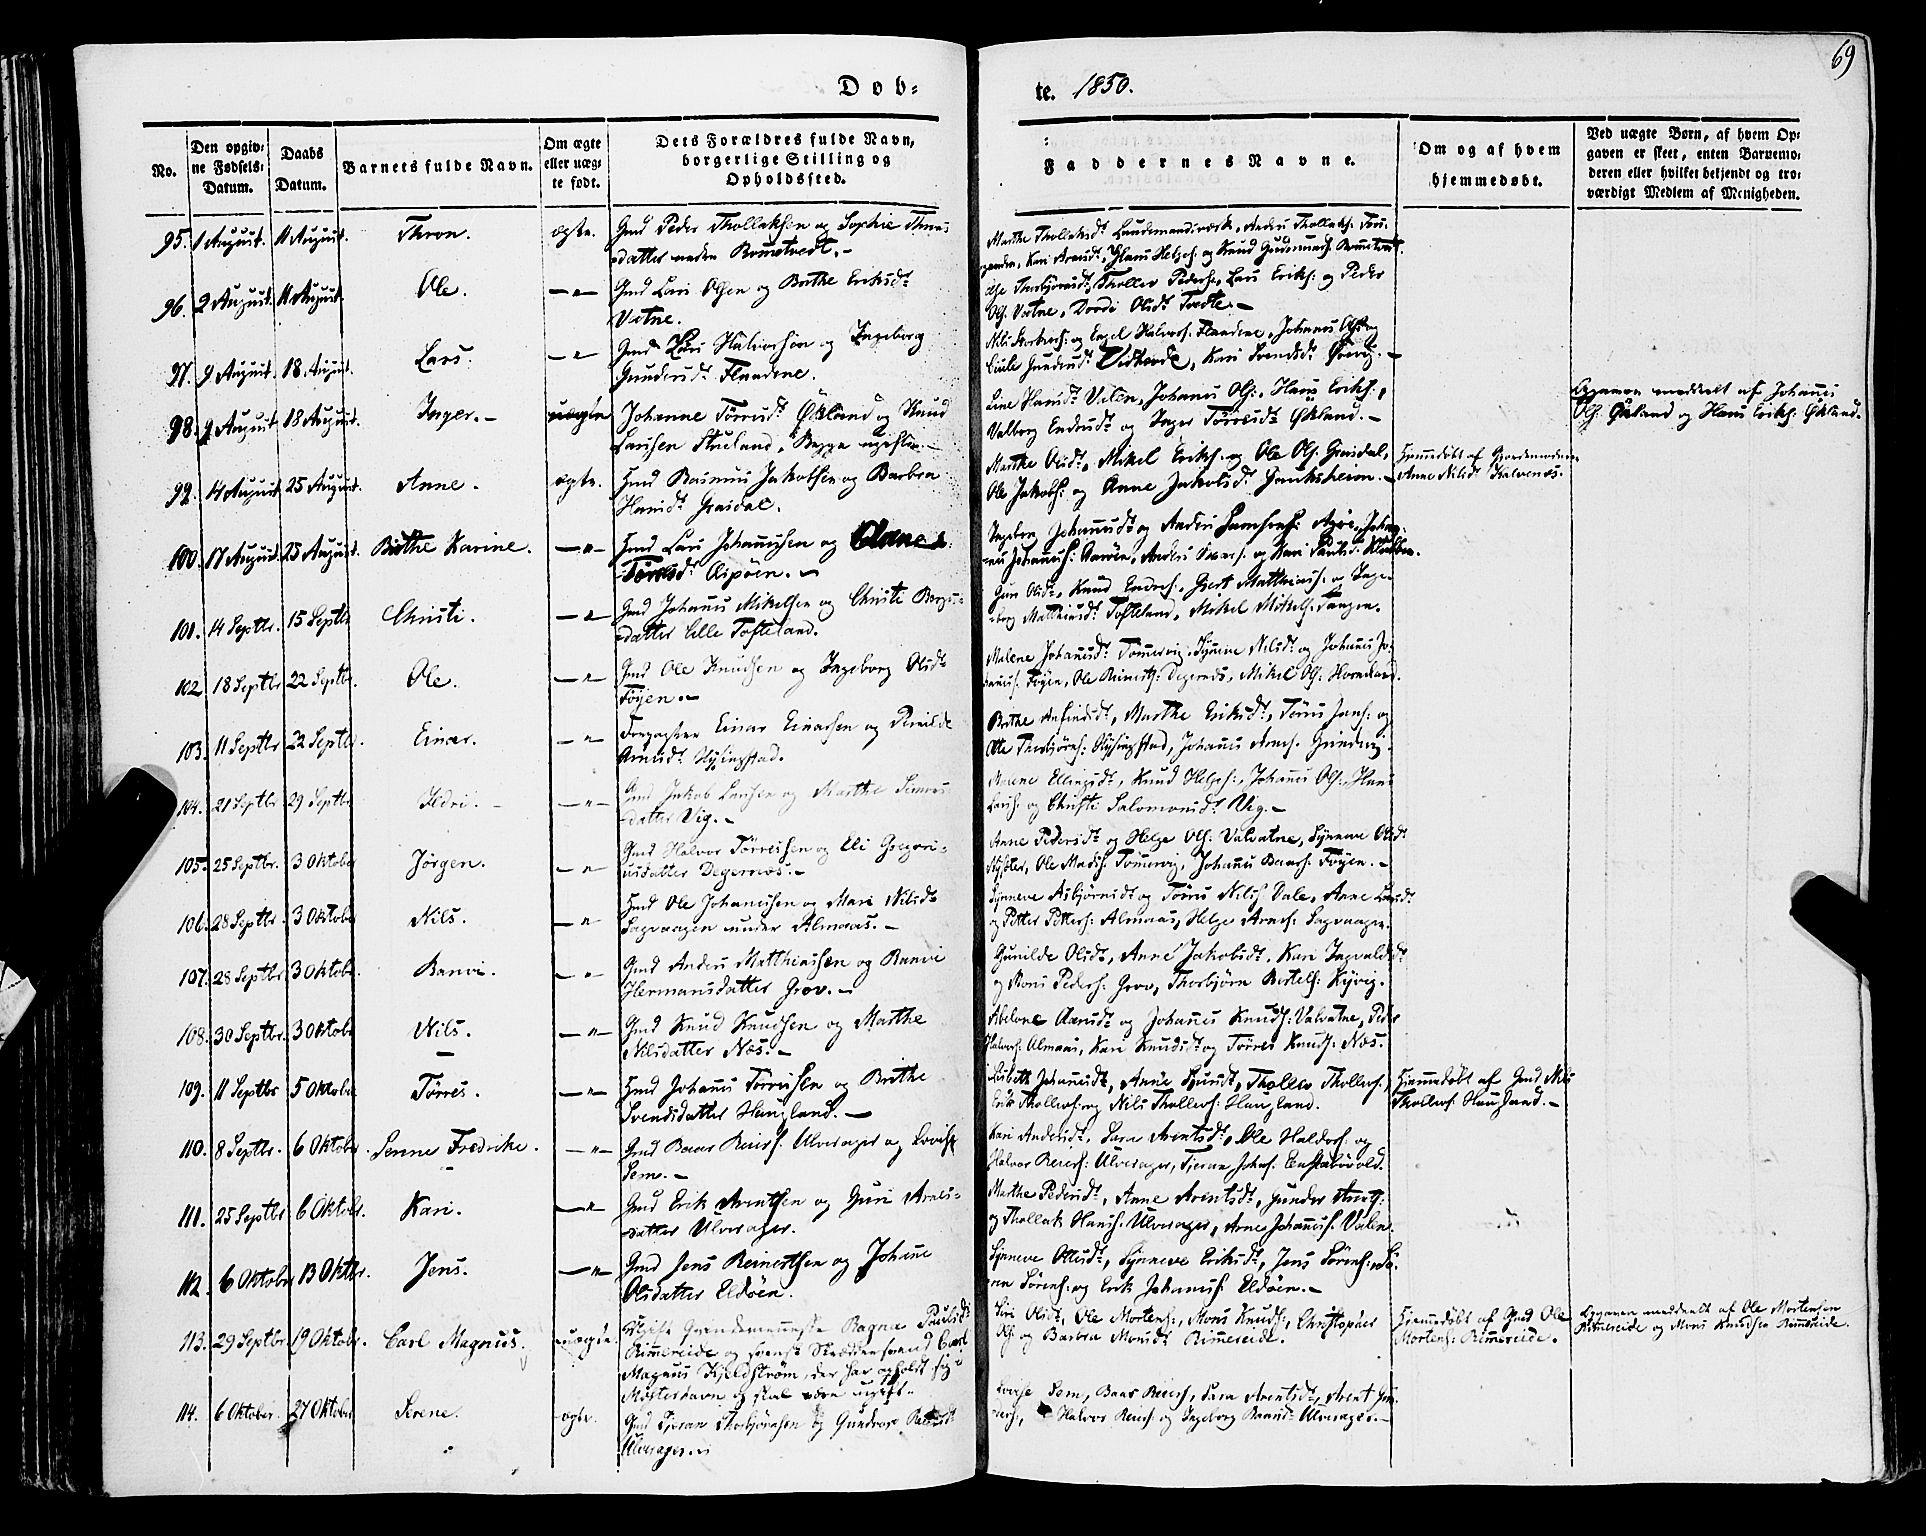 69
Døb=
te. 1850.
No.
Den opgiv=
ne Fødsels=
Datum.
Daabs
Datum.
Barnets fulde Navn.
Om ægte
eller uæg=
te født.
Dets Forældres fulde Navn,
borgerlige Stilling og
Opholdssted.
Faddernes Navne.
Om og af hvem
hjemmedøbt.
Ved uægte Børn, af hvem Op=
gaven er skeet, enten Barnemo=
deren eller hvilket bekjendt og tro=
værdigt Medlem af Menigheden.
95. 1 August. 11 August. Thron. ægte. Gmd Peder Thollaksen og Sophie
datter
Marthe Thollaksdt Anders Thollaks:
Kari Hans Helges: og Knud
96. 2 August. 11 August. Ole. —"— Gmd Lars Olsen og Brithe Eriksdt
Vatne.
Thorbjørnsdt, Thollev Peders:, Lars Eriks: og Peder
Ols: Vatne, Olsdt
97. 9 August. 18 August. Lars. —"— Gmd Lars Halvorsen og Ingeborg
Gundersdt Flaadene.
Nils og Engel Halvors: Flaadene, Johannes Ols: og
Gundersdt Kari Svendsdt
98. 9 August. 18 August. Inger.— uægte Johanne Tørresdt Økland og Knud
Larsen Begge ugifte.—
Line Hansdt Valen, Johannes Ols:, Hans Eriks:,
Valborg Endresdt og Inger Tørresdt Økland.—
Opgaven meddelt af Johannes
Ols: Økland og Hans Eriks: Økland.
99. 14 August 25 August. Anne. ægte. Hmd Rasmus Jakobsen og Barbra
Hansdt Grasdal.
Marthe Olsdt, Mikel Eriks: og Ole Ols: Grasdal,
Ole Jakobs: og Anne Jakobsdt
Hjemmedøbt af Gjordemoderen
Anne Nilsdt Kalvenæs.
100. 17 August 25 August. Brithe Karine. —"— Hmd Lars Johannesen og Anne
Tørresdt Aspøen.—
Ingebor Johannesdt og Anders
Johannes: Anders og Kari
101. 14 Septbr. 15 Septbr Christi. —"— Gmd Johannes Mikelsen og Christi
datter Lille Tofteland.
Guri Olsdt, Knud Endres:, Gjert Matthias: og Inge=
borg Matthiasdt Tofteland, Mikel Mikels:
102. 18 Septbr 22 Septbr. Ole. —"— Gmd Ole Knudsen og Ingeborg Olsdt
Føyen.—
Malene Johannesdt Tømmervig, Synneve Nilsdt og Johannes Jo=
hannes: Føyen, Ole Reinerts: Degernæs, Mikel Ols: Horneland.
103. 11 Septbr 22 Septbr. Einar. —"— Einar Einarsen og
Rysingstad.
Brithe Marthe Eriksdt, Tørres Jans: og
Thorbjørns: Rysingstad, Johannes
104. 21 Septbr 29 Septbr Sidri.— —"— Gmd Jakob Larsen og Marthe
datter Vig.—
Malene Ellingsdt, Knud Helges:, Johannes Ols:, Hans
Lars: og Christi Salomonsdt Vig.—
105. 25 Septbr. 3 Oktober Jørgen. —"— Gmd Halvor Tørresen og Eli Gregori=
usdatter Degernæs.—
Anne Pedersdt og Helge Ols: Valvatne, Synneve Olsdt
Ole Mads: Tømmervig, Johannes Baars: Føyen.—
106. 28 Septbr. 3 Oktober Nils. —"— Hmd Ole Johannesen og Mari Nilsdt
Sagvaagen under Almaas.—
Synneve Asbjørnsdt og Tørres Nils: Dale, Anne Larsdt
og Petter Petters: Almaas, Helge Arnes: Sagvaagen.
107. 28 Septbr 3 Oktober Ranvi. —"— Gmd Anders Matthiasen og Ranvi
Hermansdatter Grov.—
Gunilde Olsdt, Anne Jakobsdt, Kari Ingvaldsdt
og Mons Peders: Grov, Thorbjørn Bertels: Kyvig.
108. 30 Septbr. 3 Oktober Nils. —"— Gmd Knud Knudsen og Marthe
Nilsdatter Næs.—
Abelone og Johannes Knuds: Valvatne, Peder
Halvors: Almaas, Kari Knudsdt og Tørres Knuds: Næs.
109. 11 Septbr 5 Oktober Tørres. —"— Hmd Johannes Tørresen og Brithe
Svendsdatter Haugland.—
Lisbeth Johannesdt, Anne Thollev Thollevs:,
Erik Thollevs: og Nils Thollevs: Haugland.
Hjemmedøbt af Gmd Nils
Thollevs: Haugland.—
110. 8 Septbr. 6 Oktober. Senne Fredrike. —"— Gmd Baar Reiers: Ulverager og Lovise
Sem.—
Kari Andersdt, Sara Arentsdt, Ole Haldors: og
Halvor Reiers: Ulverager, Tjeran Johs:
111. 25 Septbr 6 Oktober. Kari. —"— Gmd Erik Arentsen og Guri Arnes=
datter Ulverager.
Marthe Pedersdt, Anne Arentsdt, Gunder Arents:
og Thollak Hans: Ulverager, Arne Johannes: Valen.
112. 6 Oktober 13 Oktbr. Jens. —"— Gmd Jens Reinertsen og Johanne
Olsdatter Eldøen.
Synneve Olsdt, Synneve Eriksdt, Jens Sørens:,
Sørens: og Erik Johannes: Eldøen.—
113. 29 Septbr 19 Oktobr. Carl Magnus. uægte. Ragna Paulsdt
Rimereide og svensk Carl
Magnus Kjeldstrøm, der har opholdt sig i
Mosterhavn og skal være ugift.
Siri Olsdt, Ole Mortens:, Mons Knuds:, Christopher
Ols: og Barbra Monsdt Rimereide.
Hjemmedøbt af Gmd Ole
Mortens: Rimereide.
Opgaven meddeelt af Ole Mortensen
Rimereide og Mons Knudsen Rimereide.
114. 6 Oktober. 27 Oktober Serene. ægte. Gmd Tjeran Thorbjørnsen og Gundvor
Ulverager.
Lovise Sem, Baar Reiers:, Sara Arentsdt, Arent
Halvor Reiers: og Ingeborg Ulverager.—